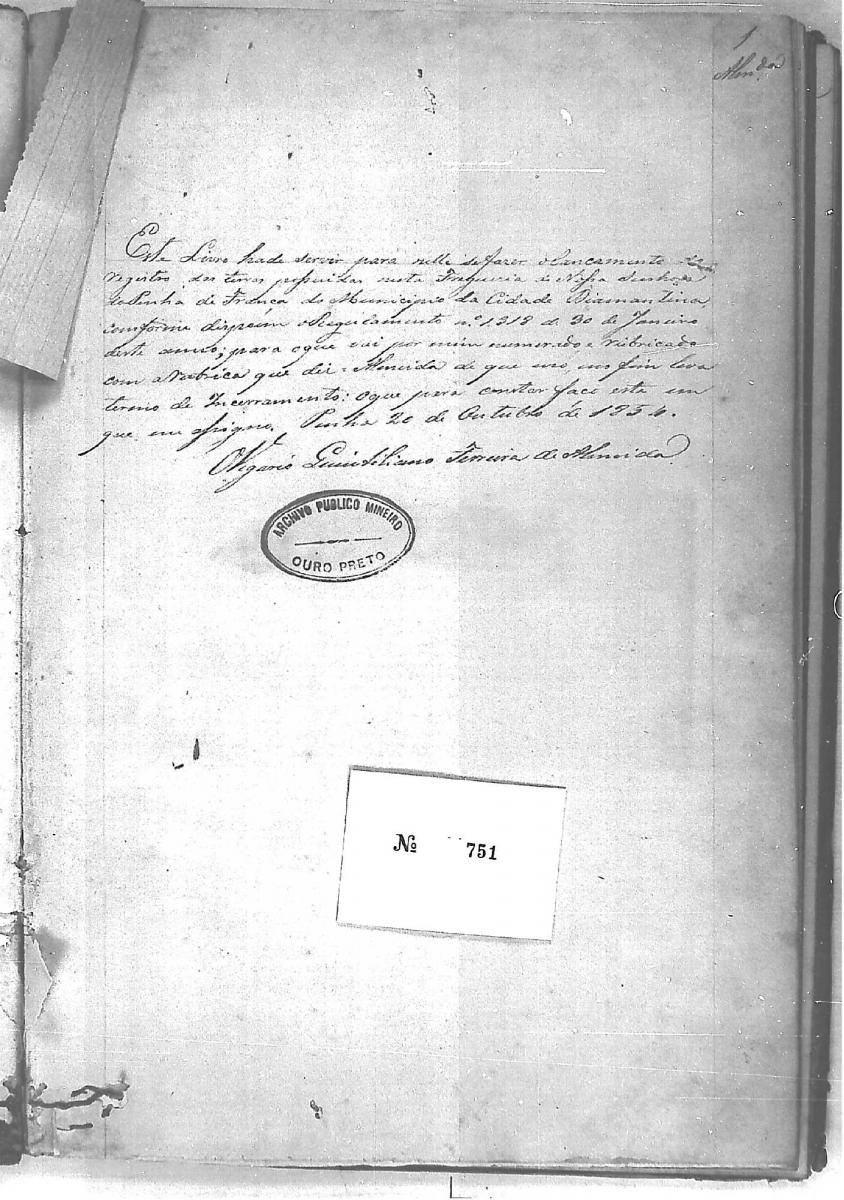 1
Alm.da
Este Livro hade servir para nelle se fazer o Lancamento de
registro das terras possuidas nesta Freguesia de Nossa Senhora
da Penha de França do Municipio da Cidade Diamantina,
comforme dispoem o Regulamento nº 1318 de 30 de Janeiro
deste anno; para o que vai por mim numerado, e rubricado
com a Rubrica que diz = Almeida de que uso, no fim leva
termo de Incerramento: o que para constar faco este em
que me assigno. Penha 20 de Outubro de 1854.
Olegario Quintiliano Ferreira de Almeida
ARCHIVO PUBLICO MINEIRO
OURO PRETO
Nº 751